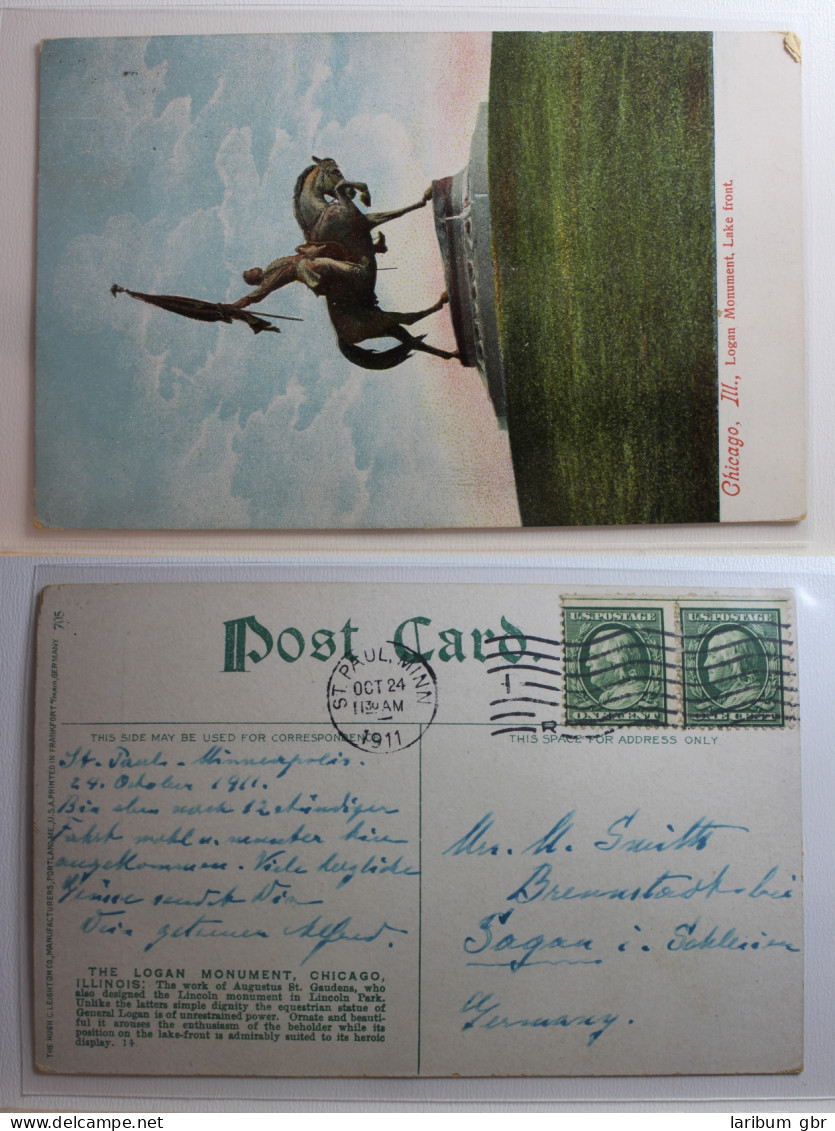 Chicago, Ill., Logan Monument, Lake front.
Post Card.
U.S. POSTAGE
ONE CENT
U.S. POSTAGE
ONE CENT
ST. PAUL, MINN
OCT 24
1130 AM
1911
THIS SIDE MAY BE USED FOR CORRESPONDENCE
THIS SPACE FOR ADDRESS ONLY
St. Paul - Minneapolis.
24. October 1911.
Bin eben nach 12 stündiger
Fahrt wohl u. munter hier
angekommen. Viele herzliche
Grüsse sendet Dir
Dein getreuer Alfred.
Mrs. M. Smith
Sagan i. Schlesien
Germany.
THE LOGAN MONUMENT, CHICAGO,
ILLINOIS: The work of Augustus St. Gaudens, who
also designed the Lincoln monument in Lincoln Park.
Unlike the latters simple dignity the equestrian statue of
General Logan is of unrestrained power. Ornate and beauti-
ful it arouses the enthusiasm of the beholder while its
position on the lake-front is admirably suited to its heroic
display. 14
THE HUGH C. LEIGHTON CO., MANUFACTURERS, PORTLAND, ME., U.S.A. PRINTED IN FRANKFORT A/MAIN, GERMANY 705
laribum gbr